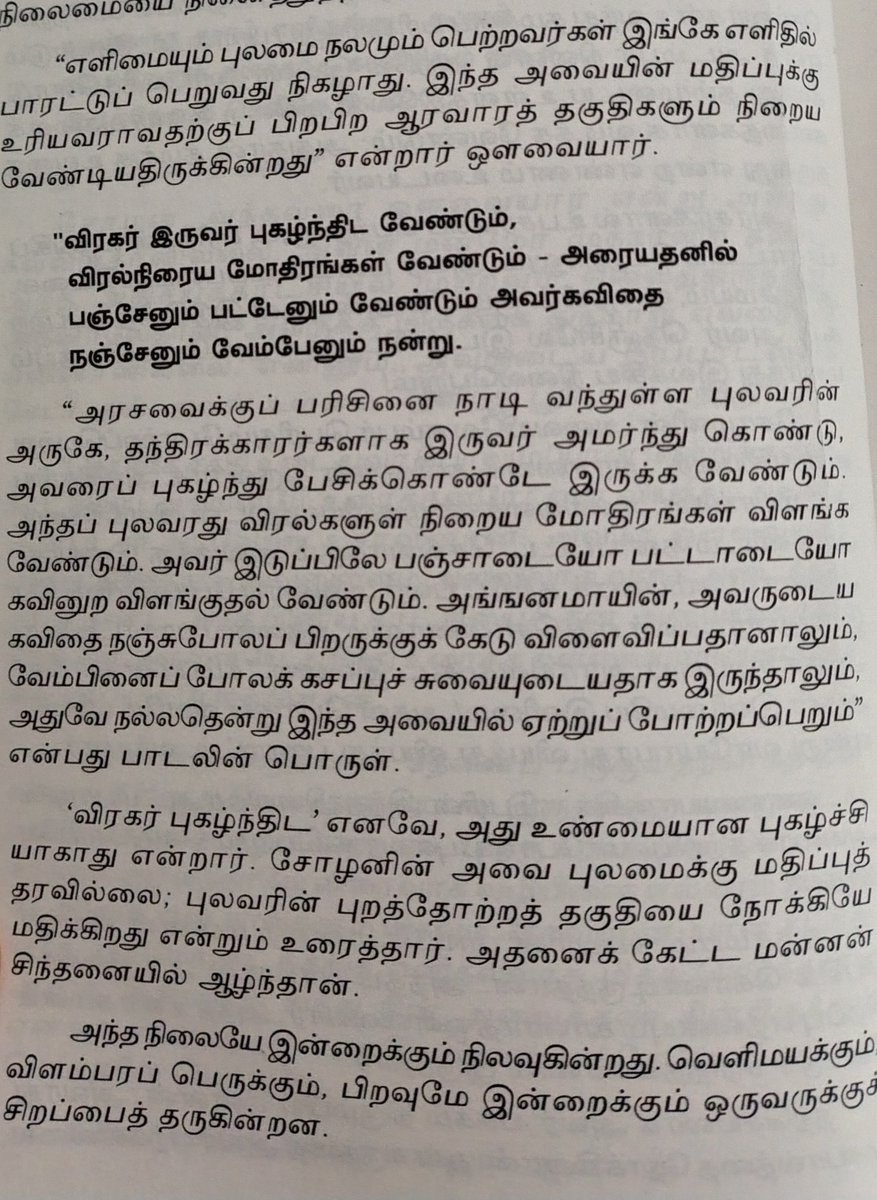 நிலைமையை
“எளிமையும் புலமை நலமும் பெற்றவர்கள் இங்கே எளிதில்
பாரட்டுப் பெறுவது நிகழாது. இந்த அவையின் மதிப்புக்கு
உரியவராவதற்குப் பிறபிற ஆரவாரத் தகுதிகளும் நிறைய
வேண்டியதிருக்கின்றது” என்றார் ஔவையார்.
"விரகர் இருவர் புகழ்ந்திட வேண்டும்,
விரல்நிரைய மோதிரங்கள் வேண்டும் - அரையதனில்
பஞ்சேனும் பட்டேனும் வேண்டும் அவர்கவிதை
நஞ்சேனும் வேம்பேனும் நன்று.
“அரசவைக்குப் பரிசினை நாடி வந்துள்ள புலவரின்
அருகே, தந்திரக்காரர்களாக இருவர் அமர்ந்து கொண்டு,
அவரைப் புகழ்ந்து பேசிக்கொண்டே இருக்க வேண்டும்.
அந்தப் புலவரது விரல்களுள் நிறைய மோதிரங்கள் விளங்க
வேண்டும். அவர் இடுப்பிலே பஞ்சாடையோ பட்டாடையோ
கவினுற விளங்குதல் வேண்டும். அங்ஙனமாயின், அவருடைய
கவிதை நஞ்சுபோலப் பிறருக்குக் கேடு விளைவிப்பதானாலும்,
வேம்பினைப் போலக் கசப்புச் சுவையுடையதாக இருந்தாலும்,
அதுவே நல்லதென்று இந்த அவையில் ஏற்றுப் போற்றப்பெறும்”
என்பது பாடலின் பொருள்.
‘விரகர் புகழ்ந்திட’ எனவே, அது உண்மையான புகழ்ச்சி
யாகாது என்றார். சோழனின் அவை புலமைக்கு மதிப்புத்
தரவில்லை; புலவரின் புறத்தோற்றத் தகுதியை நோக்கியே
மதிக்கிறது என்றும் உரைத்தார். அதனைக் கேட்ட மன்னன்
சிந்தனையில் ஆழ்ந்தான்.
அந்த நிலையே இன்றைக்கும் நிலவுகின்றது. வெளிமயக்கும்,
விளம்பரப் பெருக்கும், பிறவுமே இன்றைக்கும் ஒருவருக்குச்
சிறப்பைத் தருகின்றன.